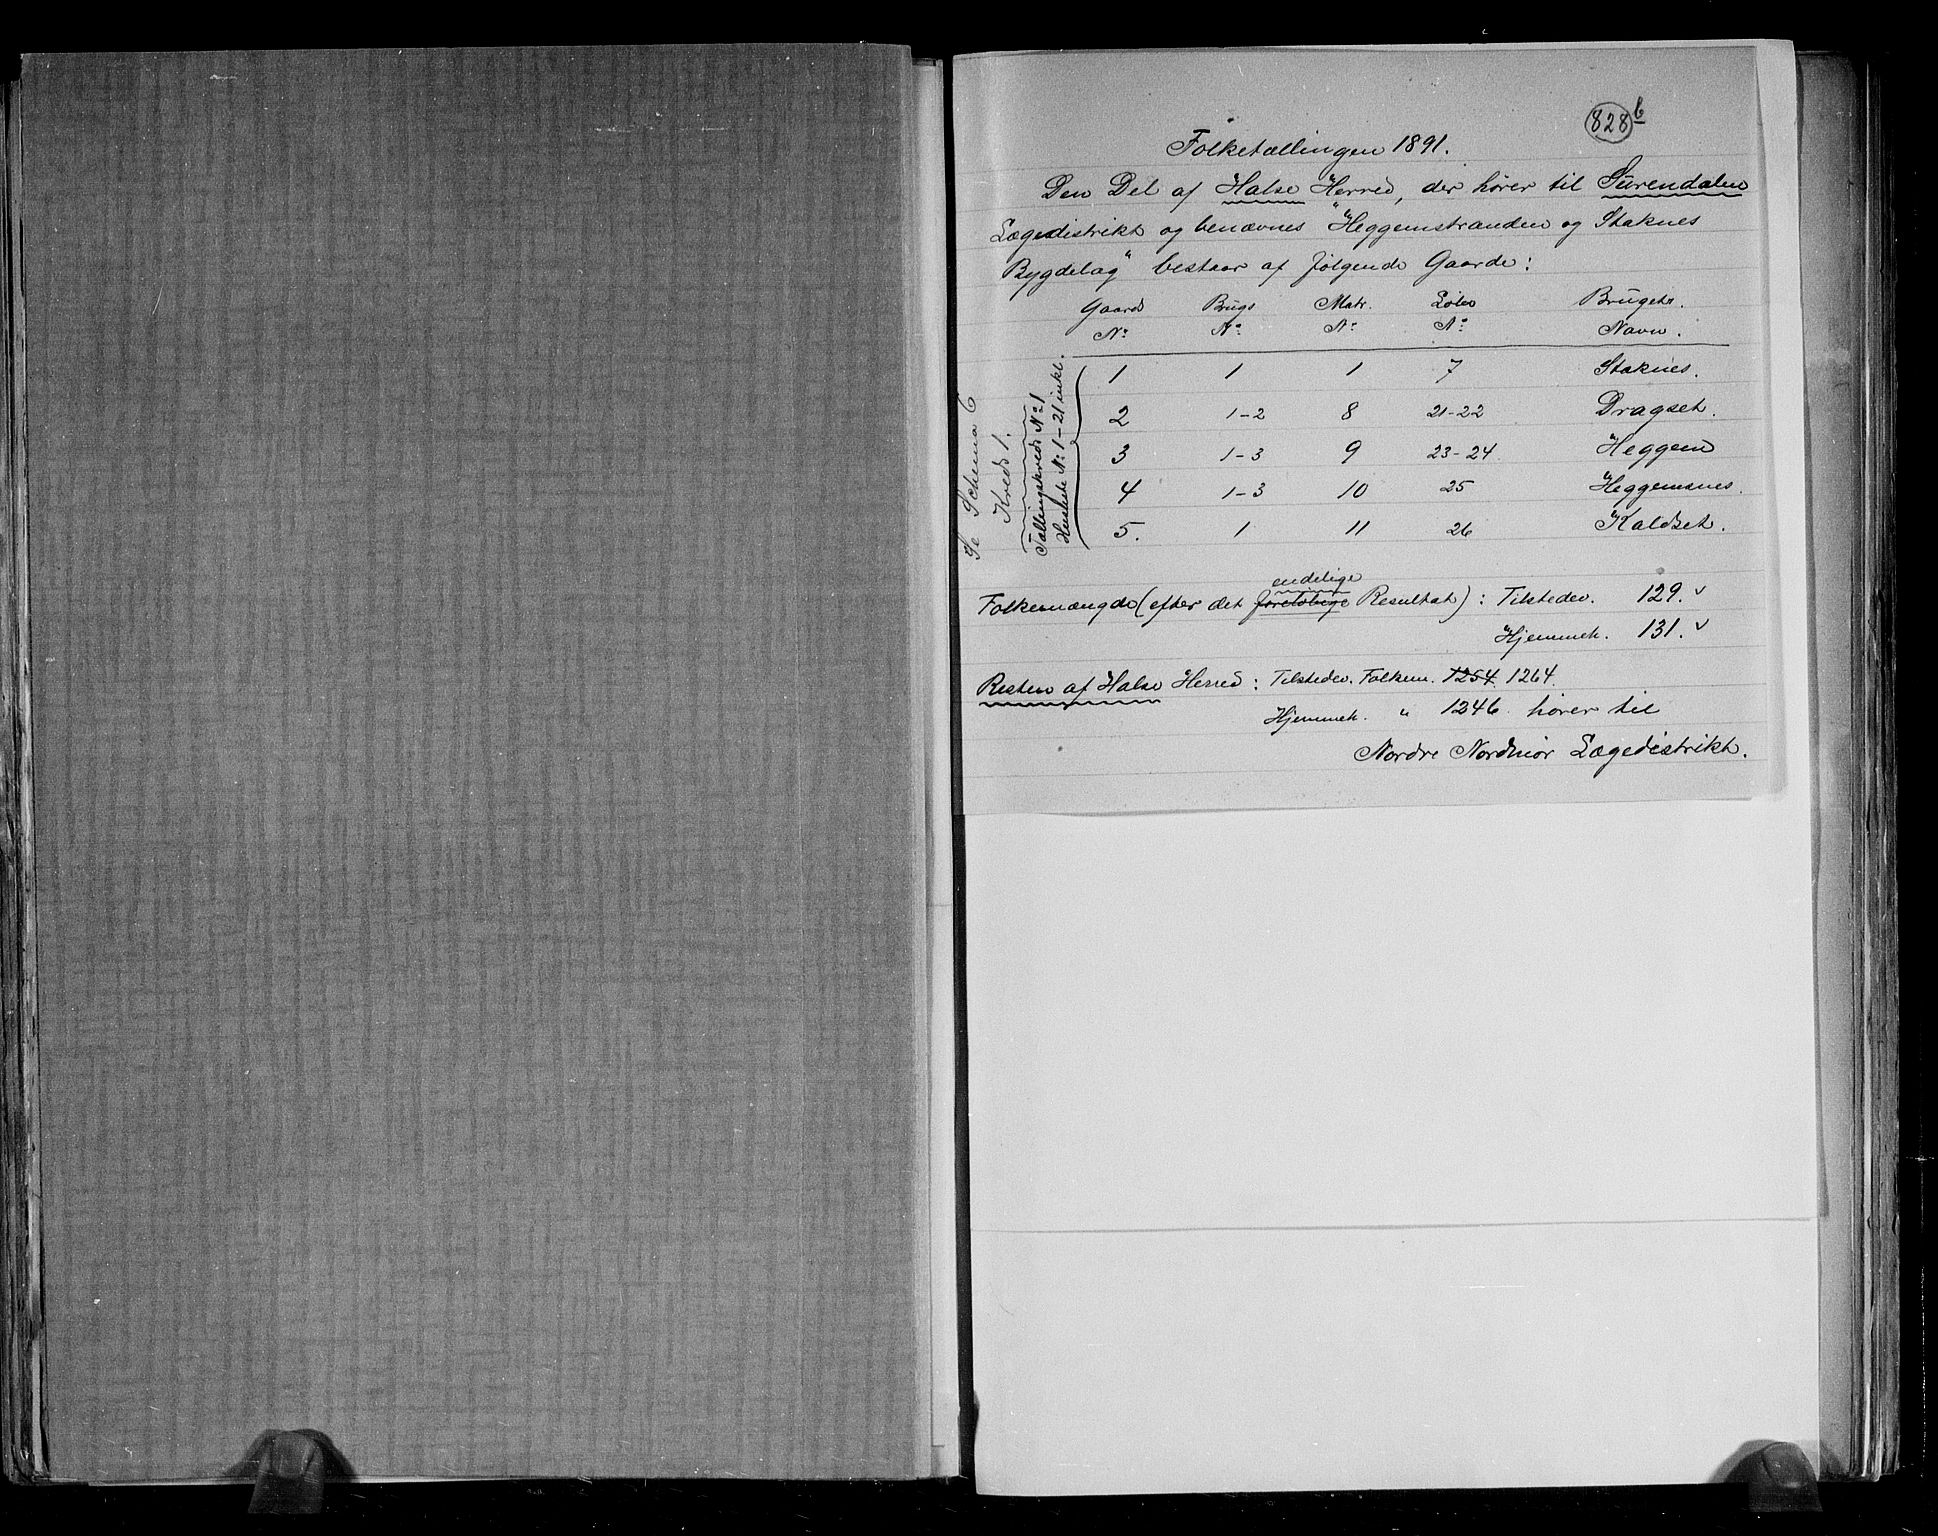 828 b
Folketællingen 1891.
Den Del af Halse Herred, der hører til Surendalen
Lægedistrikt og benævnes "Heggemstranden og Staknes
Bygdelag" bestaar af følgende Gaarde:
Gaards Brugs Matr. Løbe Brugets
N° N° N° N° Navn.
1 1 1 7 Staknes.
2 1-2 8 21-22 Dragset.
3 1-3 9 23-24 Heggem
4 1-3 10 25 Heggemsnes.
5. 1 11 26 Kaldset.
Se Schema 6
Kreds 1.
Tællingskreds N° 1
Husliste N° 1-21 inkl.
endelige
Folkemængde (efter det foreløbige Resultat): Tilstedev. 129. v
Hjemmeh. 131. v
Resten af Halse Herred: Tilstedev. Folkem. 1254. 1264.
Hjemmeh. " 1246. hører til
Nordre Nordmør Lægedistrikt.